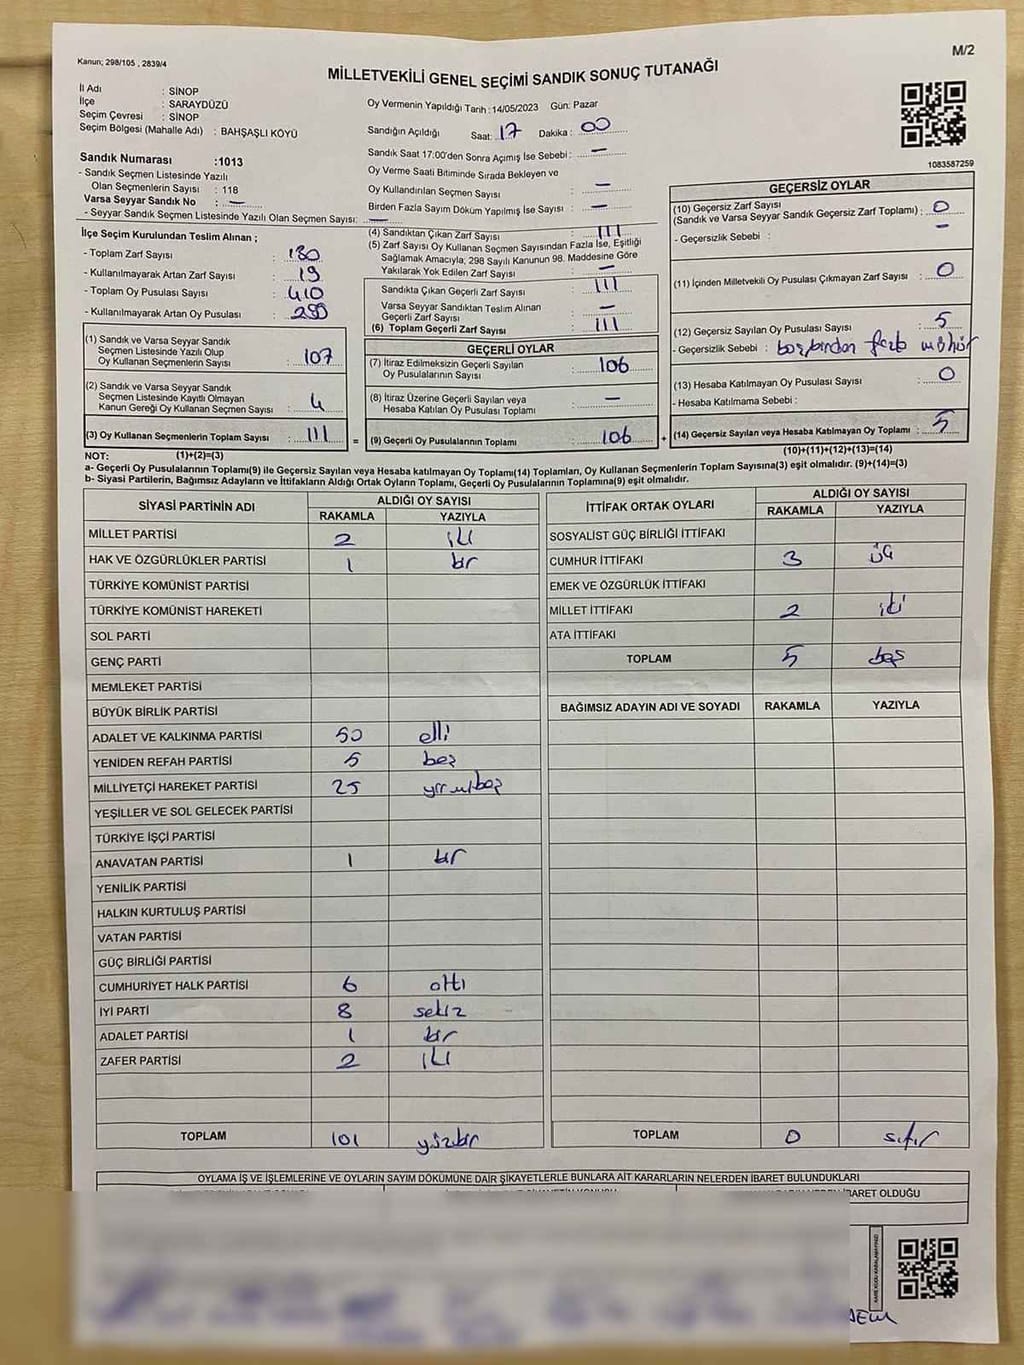 Kanun; 298/105 , 2839/4
M/2
MİLLETVEKİLİ GENEL SEÇİMİ SANDIK SONUÇ TUTANAĞI
İl Adı : SİNOP
İlçe : SARAYDÜZÜ
Seçim Çevresi : SİNOP
Seçim Bölgesi (Mahalle Adı) : BAHŞAŞLI KÖYÜ
Sandık Numarası :1013
- Sandık Seçmen Listesinde Yazılı
Olan Seçmenlerin Sayısı : 118
Varsa Seyyar Sandık No : —
- Seyyar Sandık Seçmen Listesinde Yazılı Olan Seçmen Sayısı: —
Oy Vermenin Yapıldığı Tarih : 14/05/2023 Gün: Pazar
Sandığın Açıldığı Saat: 17 Dakika : 00
Sandık Saat 17:00'den Sonra Açımış İse Sebebi : —
Oy Verme Saati Bitiminde Sırada Bekleyen ve
Oy Kullandırılan Seçmen Sayısı : —
Birden Fazla Sayım Döküm Yapılmış İse Sayısı : —
1083587259
İlçe Seçim Kurulundan Teslim Alınan ;
- Toplam Zarf Sayısı : 130
- Kullanılmayarak Artan Zarf Sayısı : 19
- Toplam Oy Pusulası Sayısı : 410
- Kullanılmayarak Artan Oy Pusulası :
(1) Sandık ve Varsa Seyyar Sandık
Seçmen Listesinde Yazılı Olup
Oy Kullanan Seçmenlerin Sayısı : 107
(2) Sandık ve Varsa Seyyar Sandık
Seçmen Listesinde Kayıtlı Olmayan
Kanun Gereği Oy Kullanan Seçmen Sayısı : 4
(3) Oy Kullanan Seçmenlerin Toplam Sayısı : 111
(4) Sandıktan Çıkan Zarf Sayısı : 111
(5) Zarf Sayısı Oy Kullanan Seçmen Sayısından Fazla İse, Eşitliği
Sağlamak Amacıyla; 298 Sayılı Kanunun 98. Maddesine Göre
Yakılarak Yok Edilen Zarf Sayısı : —
Sandıkta Çıkan Geçerli Zarf Sayısı : 111
Varsa Seyyar Sandıktan Teslim Alınan
Geçerli Zarf Sayısı : —
(6) Toplam Geçerli Zarf Sayısı : 111
GEÇERLİ OYLAR
(7) İtiraz Edilmeksizin Geçerli Sayılan
Oy Pusulalarının Sayısı : 106
(8) İtiraz Üzerine Geçerli Sayılan veya
Hesaba Katılan Oy Pusulası Toplamı : —
= (9) Geçerli Oy Pusulalarının Toplamı : 106 +
GEÇERSİZ OYLAR
(10) Geçersiz Zarf Sayısı
(Sandık ve Varsa Seyyar Sandık Geçersiz Zarf Toplamı) : 0
- Geçersizlik Sebebi : —
(11) İçinden Milletvekili Oy Pusulası Çıkmayan Zarf Sayısı : 0
(12) Geçersiz Sayılan Oy Pusulası Sayısı : 5
- Geçersizlik Sebebi : fazla mühür
(13) Hesaba Katılmayan Oy Pusulası Sayısı : 0
- Hesaba Katılmama Sebebi :
(14) Geçersiz Sayılan veya Hesaba Katılmayan Oy Toplamı : 5
NOT: (1)+(2)=(3)
(10)+(11)+(12)+(13)=(14)
a- Geçerli Oy Pusulalarının Toplamı(9) ile Geçersiz Sayılan veya Hesaba katılmayan Oy Toplamı(14) Toplamları, Oy Kullanan Seçmenlerin Toplam Sayısına(3) eşit olmalıdır. (9)+(14)=(3)
b- Siyasi Partilerin, Bağımsız Adayların ve İttifakların Aldığı Ortak Oyların Toplamı, Geçerli Oy Pusulalarının Toplamına(9) eşit olmalıdır.
SİYASİ PARTİNİN ADI ALDIĞI OY SAYISI
RAKAMLA YAZIYLA
MİLLET PARTİSİ 2 iki
HAK VE ÖZGÜRLÜKLER PARTİSİ 1 bir
TÜRKİYE KOMÜNİST PARTİSİ
TÜRKİYE KOMÜNİST HAREKETİ
SOL PARTİ
GENÇ PARTİ
MEMLEKET PARTİSİ
BÜYÜK BİRLİK PARTİSİ
ADALET VE KALKINMA PARTİSİ 50 elli
YENİDEN REFAH PARTİSİ 5 beş
MİLLİYETÇİ HAREKET PARTİSİ 25 yirmibeş
YEŞİLLER VE SOL GELECEK PARTİSİ
TÜRKİYE İŞÇİ PARTİSİ
ANAVATAN PARTİSİ 1 bir
YENİLİK PARTİSİ
HALKIN KURTULUŞ PARTİSİ
VATAN PARTİSİ
GÜÇ BİRLİĞİ PARTİSİ
CUMHURİYET HALK PARTİSİ 6 altı
İYİ PARTİ 8 sekiz
ADALET PARTİSİ 1 bir
ZAFER PARTİSİ 2 iki
TOPLAM 101 yüzbir
İTTİFAK ORTAK OYLARI ALDIĞI OY SAYISI
RAKAMLA YAZIYLA
SOSYALİST GÜÇ BİRLİĞİ İTTİFAKI
CUMHUR İTTİFAKI 3 üç
EMEK VE ÖZGÜRLÜK İTTİFAKI
MİLLET İTTİFAKI 2 iki
ATA İTTİFAKI
TOPLAM 5 beş
BAĞIMSIZ ADAYIN ADI VE SOYADI RAKAMLA YAZIYLA
TOPLAM 0 sıfır
OYLAMA İŞ VE İŞLEMLERİNE VE OYLARIN SAYIM DÖKÜMÜNE DAİR ŞİKAYETLERLE BUNLARA AİT KARARLARIN NELERDEN İBARET BULUNDUKLARI
İBARET OLDUĞU